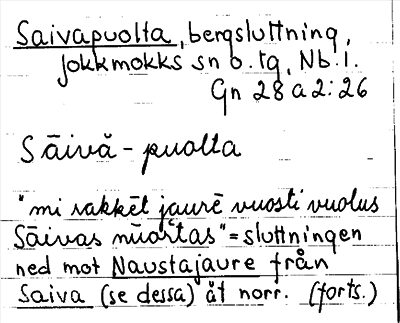 Saivapuolta, bergsluttning,
Jokkmokks sn o. tg, Nb. l.
Gn 28 a 2:26
Sāivă - puolta
"mi rakkēt jaurē vuosti vuolus
Sāivas nūortas" = sluttningen
ned mot Naustajaure från
Saiva (se dessa) åt norr. (forts.)